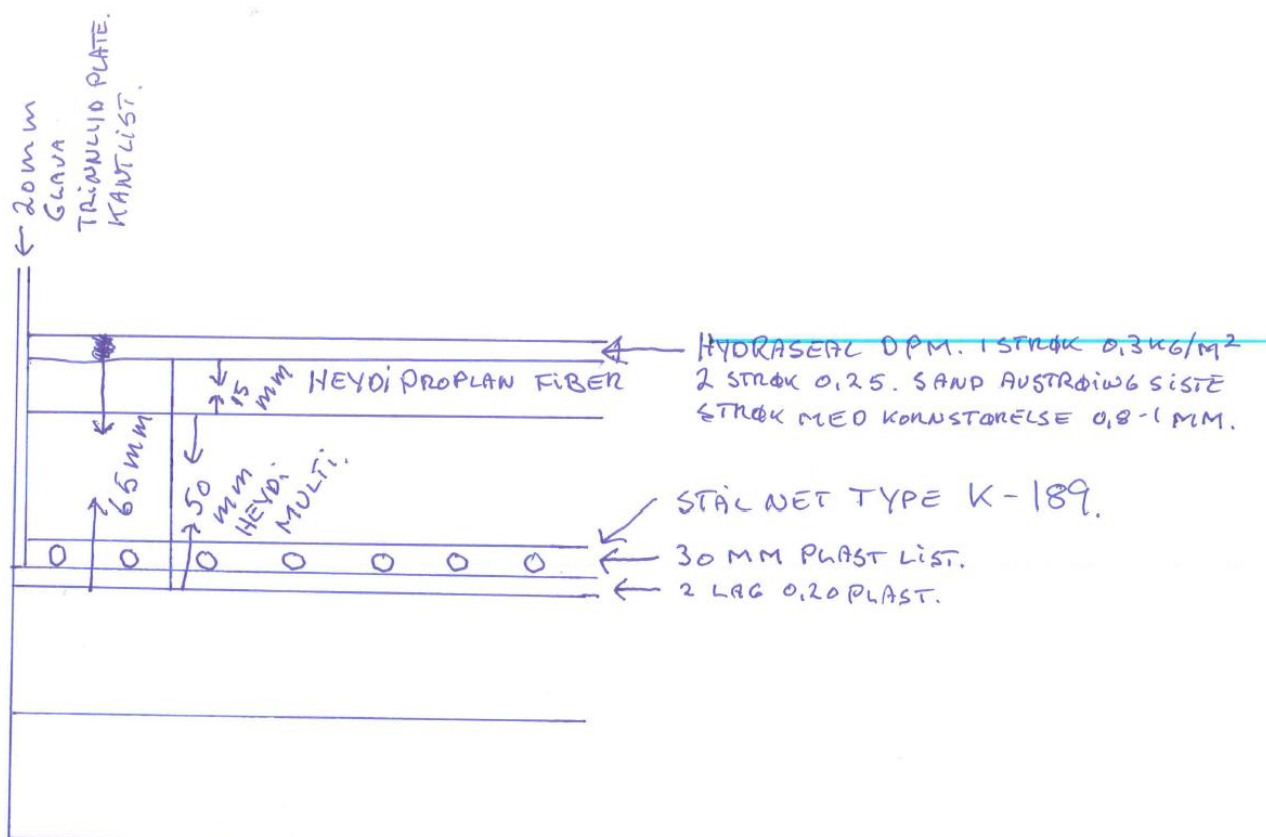 20mm
GLAVA
TRINNLYD PLATE.
KANTLIST.
HYDRASEAL DPM. 1 STRØK 0,3 KG/M²
2 STRØK 0,25. SAND AVSTRØING SISTE
STRØK MED KORNSTØRELSE 0,8-1 MM.
15
mm
HEYDI PROPLAN FIBER
65mm
50
mm
HEYDI
MULTI.
STÅL NET TYPE K-189.
30 MM PLAST LIST.
2 LAG 0,20 PLAST.